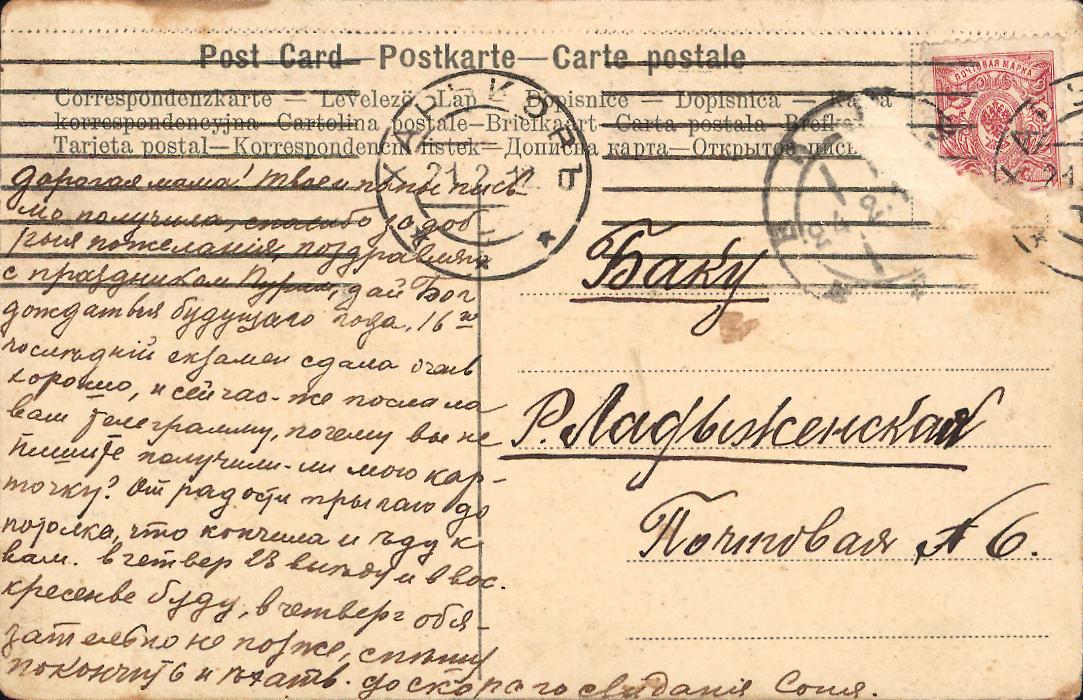 Post Card—Postkarte—Carte postale
Correspondenzkarte — Levelező-Lap — Dopisnice — Dopisnica — Ka
korrespondencyjna—Cartolina postale—Briefkaart—Carta postala—Brefka
Tarjeta postal—Korrespondencni listek—Дописна карта—Открытое письмо
ПОЧТОВАЯ МАРКА
ХАРЬКОВЪ
21.2.12
БАКУ
Дорогая мама! Твое и папы пись
мо получила, спасибо за доб
рыя пожелания, поздравляю
с праздником Пурим, дай Бог
дождаться будущаго года. 16го
последній екзамен сдала очень
хорошо, и сейчас-же послала
вам телеграмму, почему вы не
пишите получили-ли мою кар-
точку? От радости прыгаю до
потолка, что кончила и ѣду к
вам. в четвер 23 выѣду и в вос.
кресенье буду, в четверг обя-
зательно не позже, спѣшу
покончить и ѣхать. до скораго свиданія Соня.
Баку
Р. Ладыженская
Почтовая № 6.